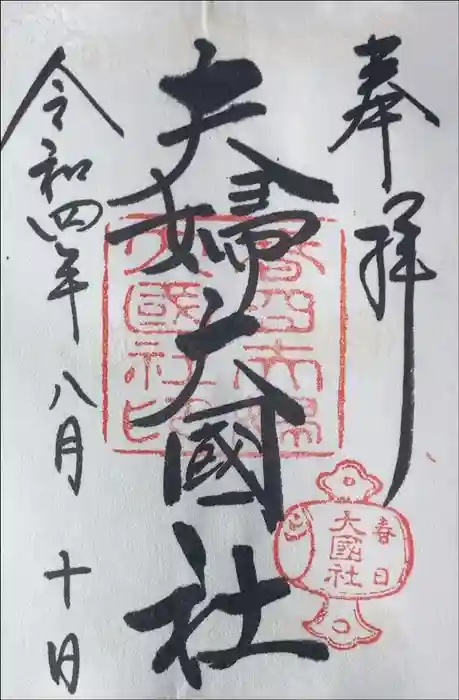 奉拝
夫婦大國社
令和四年八月十日
春日
大國社